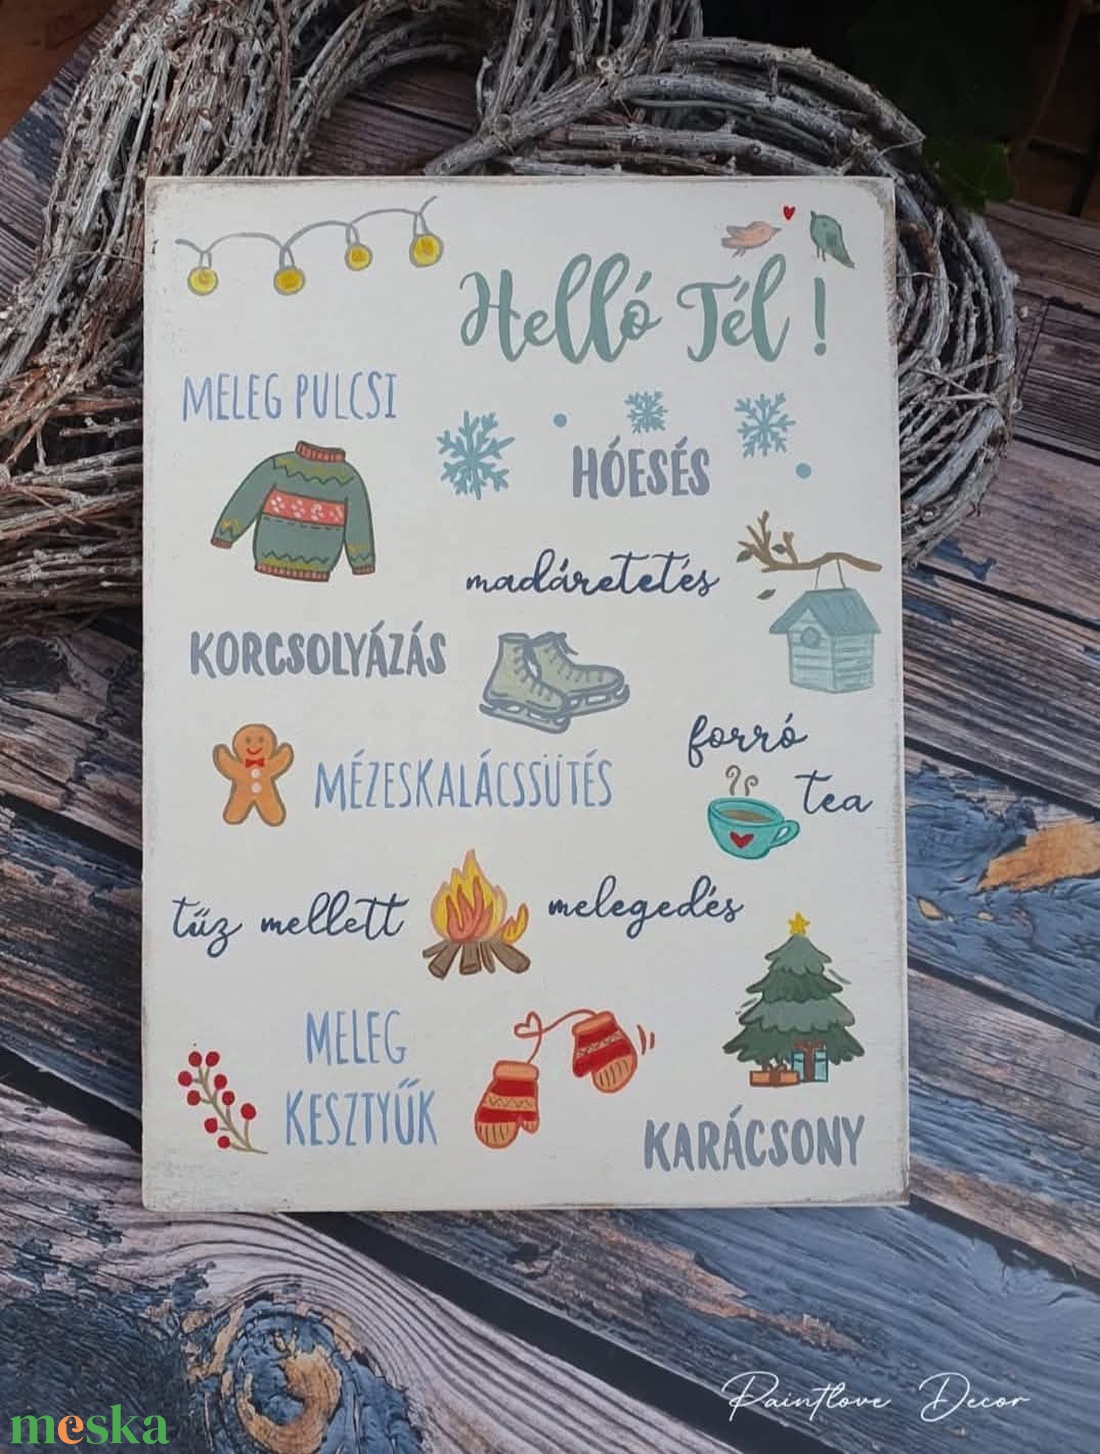 Helló Tél!
MELEG PULCSI
HÓESÉS
madáretetés
KORCSOLYÁZÁS
forró
tea
MÉZESKALÁCSSÜTÉS
tűz mellett melegedés
MELEG
KESZTYŰK
KARÁCSONY
Paintlove Decor
meska